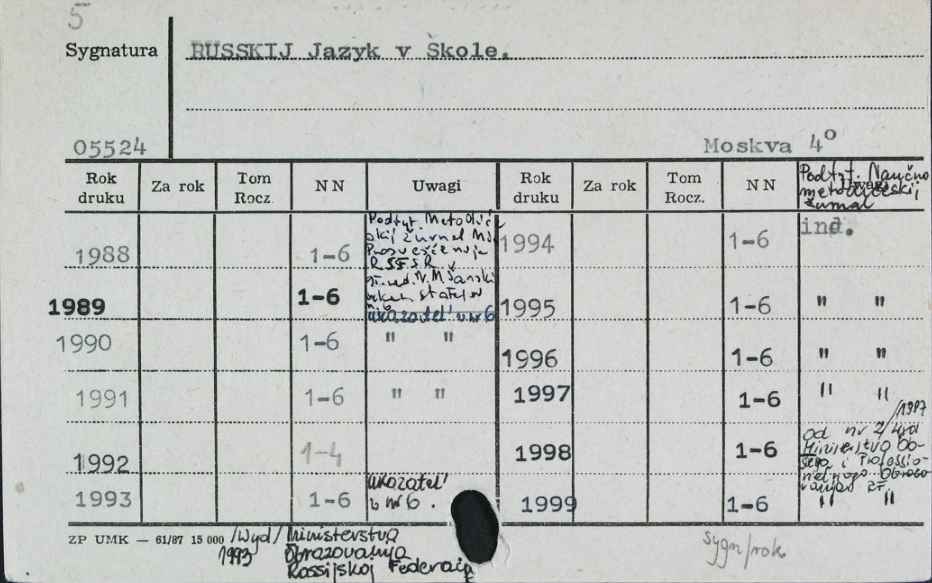 5
Sygnatura RUSSKIJ Jazyk v Škole.
05524 Moskva 4°
Rok druku Za rok Tom Rocz. NN Uwagi Rok druku Za rok Tom Rocz. NN Uwagi
Podtyt. Naučno
metodičeskij
žurnal
1988 1-6 Podtyt. Metodič
skij žurnal Mi
Prosveščenija
RSFSR
1994 1-6 ind.
1989 1-6
ukazatel' v nr 6
1995 1-6 " "
1990 1-6 " "
1996 1-6 " "
1991 1-6 " "
1997 1-6 " "
1992 1-4
1998 1-6 od nr 2/1997 wyd
Ministerstvo Ob-
ščego i Professio-
nal'nogo Obrazo-
vanija RF.
1993 1-6 ukazatel'
v nr 6.
1999 1-6 " "
ZP UMK — 61/87 15 000 /Wyd/ Ministerstva
1993 Obrazovanija
Rossijskoj Federacij
Sygn/rok